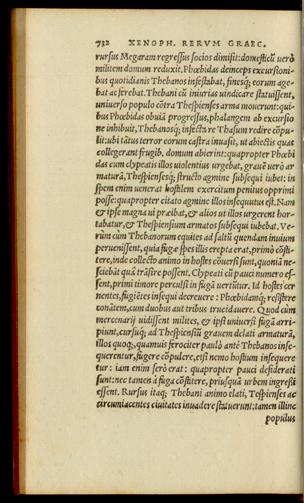 732 XENOPH. RERUM GRAEC.
rursus Megaram regressus socios dimisit: domesticũ uerò
militem domum reduxit. Phœbidas deinceps excursioni-
bus quotidianis Thebanos infestabat, finesq; eorum age-
bat ac ferebat. Thebani cũ iniurias uindicare statuissent,
uniuerso populo cõtra Thespienses arma mouerunt: qui-
bus Phœbidas obuiã progressus, phalangem ab excursio
ne inhibuit, Thebanosq; infecta re Thasum redire cõpu-
lit: ubi tãtus terror eorum castra inuasit, ut abiectis quas
collegerant frugib. domum abierint: quapropter Phœbi
das cum clypeatis illos uiolentius urgebat, grauẽ uerò ar
maturã, Thespiensesq; structo agmine subsequi iubet: in
spem enim uenerat hostilem exercitum penitus opprimi
posse: quapropter citato agmine illos insequutus est. Nam
& ipse magna ui præibat, & alios ut illos urgerent hor-
tabatur, & Thespiensium armatos subsequi iubebat. Ve-
rùm cùm Thebanorum equites ad saltũ quendam inuium
peruenissent, quia fugæ spes illis erepta erat, primò cõsti-
tere, inde collecto animo in hostes cõuersi sunt, quoniã ne-
sciebãt quà trãsire possent. Clypeati cũ pauci numero es-
sent, primi timore perculsi in fugã uertũtur. Id hostes cer
nentes, fugiẽtes insequi decreuere: Phœbidamq; resistere
conãtem, cum duobus aut tribus trucidauere. Quod cùm
mercenarij uidissent milites, & ipsi uniuersi fugã arri-
piunt, cursuq; ad Thespiensiũ grauem delati armaturã,
illos quoq;, quamuis ferociter paulò antè Thebanos inse-
querentur, fugere cõpulere, etsi nemo hostium insequere
tur: iam enim serò erat: quapropter pauci desiderati
sunt: nec tamen à fuga cõstitere, priusquã urbem ingressi
essent. Rursus itaq; Thebani animo elati, Tespienses ac
circumiacentes ciuitates inuadere statuerunt: tamen illinc
populus